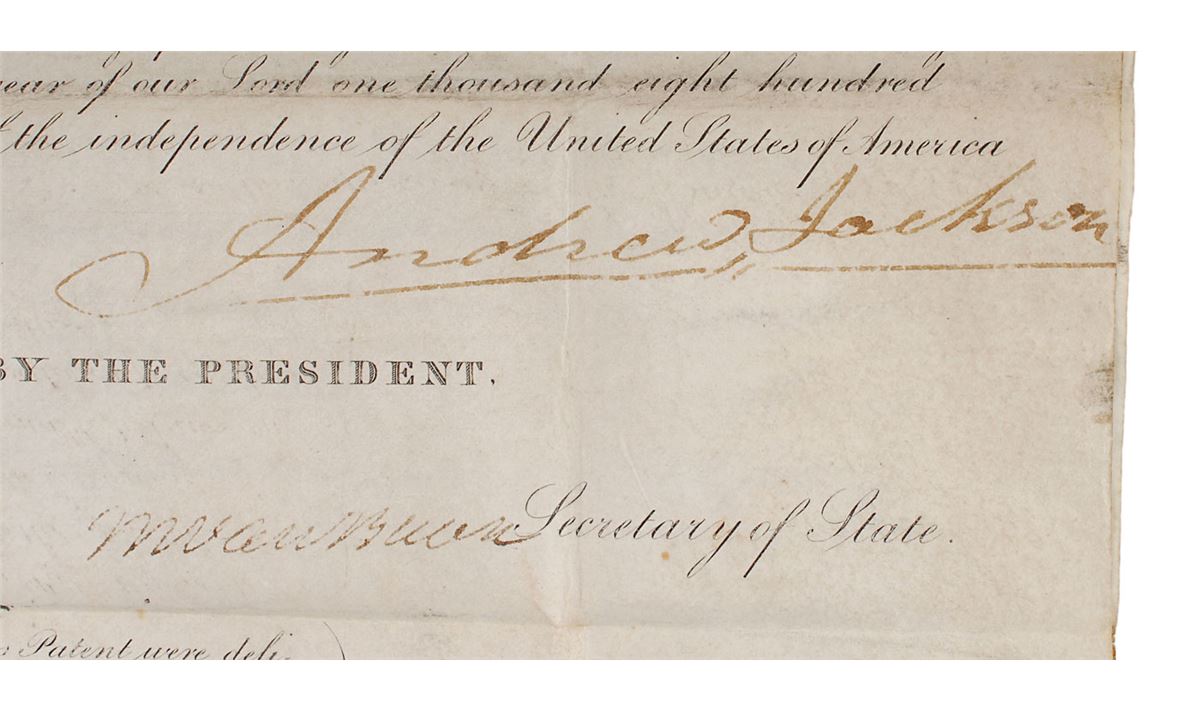 year of our Lord one thousand eight hundred
the independence of the United States of America
Andrew Jackson
BY THE PRESIDENT,
M Van Buren Secretary of State.
Patent were deli-